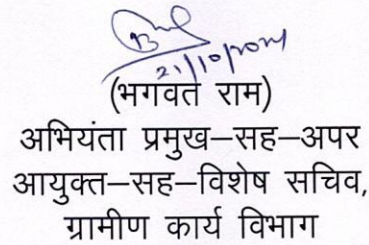 21/10/2024
(भगवत राम)
अभियंता प्रमुख–सह–अपर
आयुक्त–सह–विशेष सचिव,
ग्रामीण कार्य विभाग